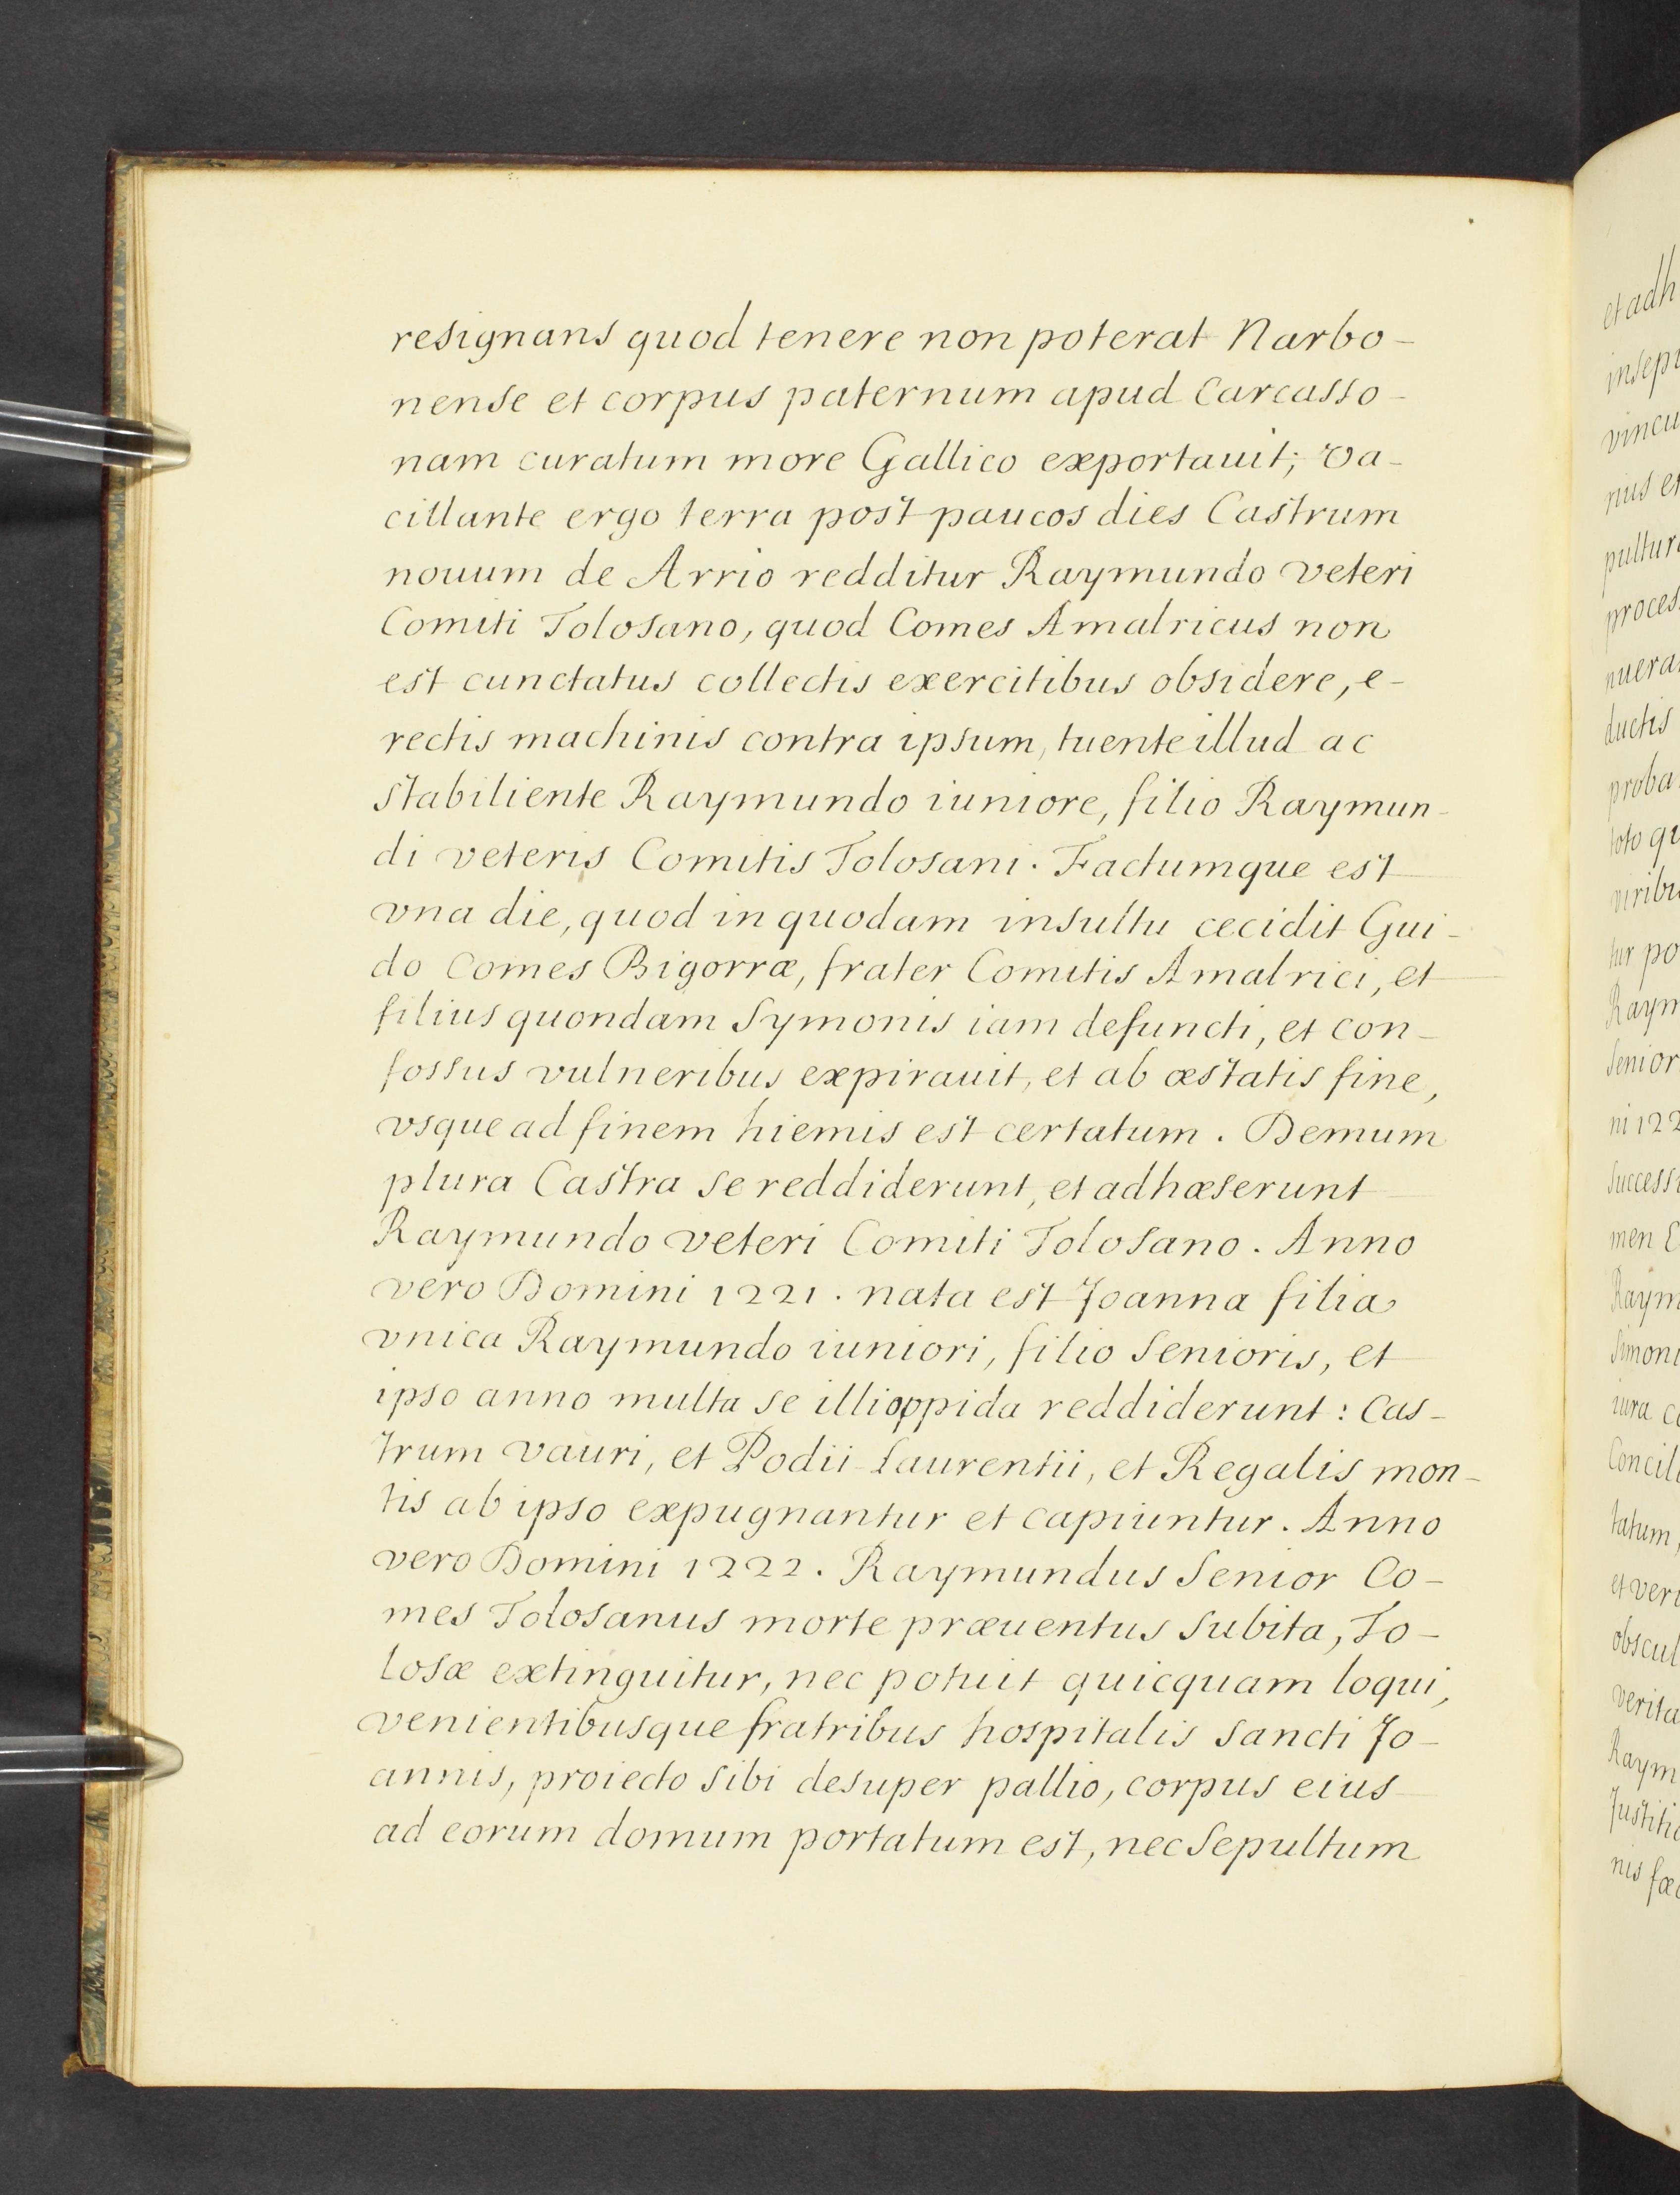 resignans quod tenere non poterat Narbo-
nense et corpus paternum apud Carcasso-
nam curatum more Gallico exportauit; va-
cillante ergo terra post paucos dies Castrum
nouum de Arrio redditur Raymundo veteri
Comiti Tolosano, quod Comes Amalricus non
est cunctatus collectis exercitibus obsidere, e-
rectis machinis contra ipsum, tuente illud ac
stabiliente Raymundo iuniore, filio Raymun-
di veteris Comitis Tolosani. Factumque est
vna die, quod in quodam insultu cecidit Gui-
do Comes Bigorræ, frater Comitis Amalrici, et
filius quondam Symonis iam defuncti, et con-
fossus vulneribus expirauit, et ab æstatis fine,
vsque ad finem hiemis est certatum. Demum
plura Castra se reddiderunt, et adhæserunt
Raymundo veteri Comiti Tolosano. Anno
vero Domini 1221. nata est Joanna filia
vnica Raymundo iuniori, filio Senioris, et
ipso anno multa se illi oppida reddiderunt: Cas-
trum vauri, et Podii Laurentii, et Regalis mon-
tis ab ipso expugnantur et capiuntur. Anno
vero Domini 1222. Raymundus Senior Co-
mes Tolosanus morte præuentus subita, To-
losæ extinguitur, nec potuit quicquam loqui,
venientibusque fratribus hospitalis sancti Jo-
annis, proiecto sibi desuper pallio, corpus eius
ad eorum domum portatum est, nec sepultum
et adh
vincu
pultur
proces
nuera
ductis
proba
toto qu
viribu
tur po
Raym
Senior
ni 122
Success
men E
Raym
Simoni
iura c
Concil
tatum,
et veri
obscul
verita
Raym
Justiti
nis fæ